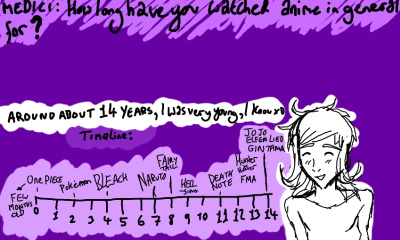 MEDICI: How long have you watched anime in general
for?
AROUND ABOUT 14 YEARS, I WAS VERY YOUNG, I KNOW XD
Timeline:
JOJO
ELFEN LIED
GINTAMA
FAIRY
TAIL
Hunter
Hunter
FMA
ONE PIECE
Pokémon
BLEACH
NARUTO
HELL
SING
DEATH
NOTE
FEW
MONTHS
OLD
0 1 2 3 4 5 6 7 8 9 10 11 12 13 14